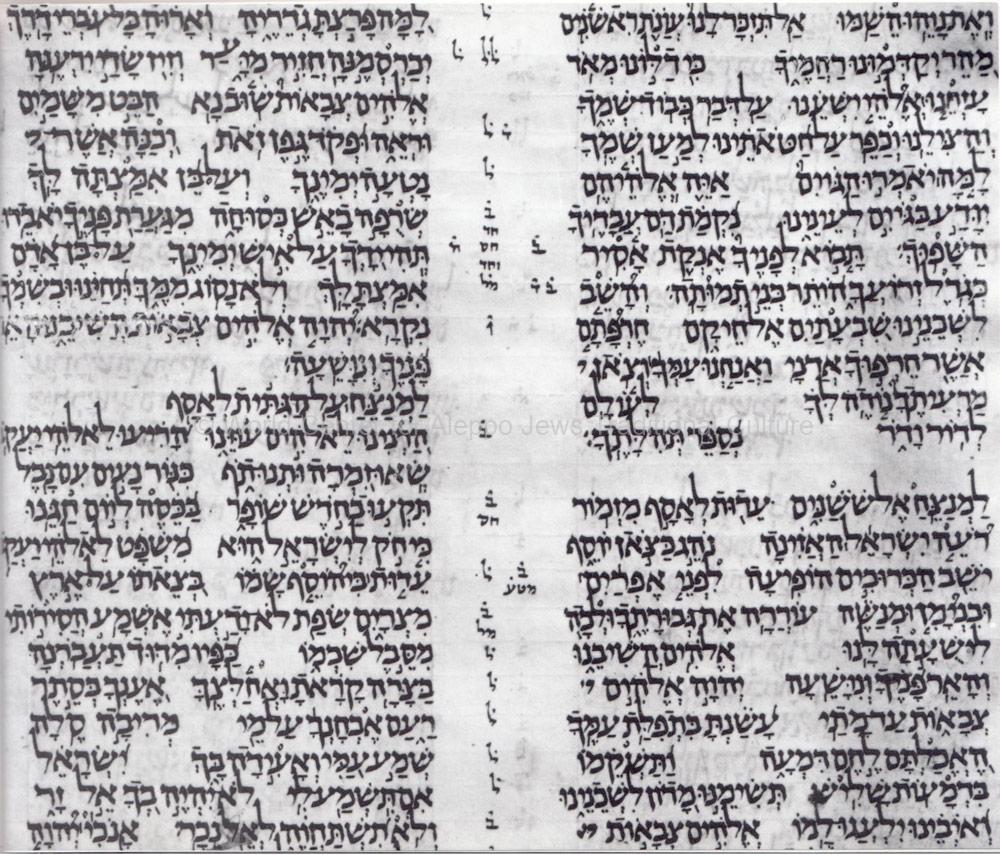 ואת נוהו השמו אל תזכר לנו עונת ראשנים
מהר יקדמונו רחמיך כי דלונו מאד
עזרנו אלהי ישענו על דבר כבוד שמך
והצילנו וכפר על חטאתינו למען שמך
למה יאמרו הגוים איה אלהיהם
יודע בגיים לעינינו נקמת דם עבדיך
השפוך תבוא לפניך אנקת אסיר
כגדל זרועך הותר בני תמותה והשב
לשכנינו שבעתים אל חיקם חרפתם
אשר חרפוך אדני ואנחנו עמך וצאן
מרעיתך נודה לך לעולם
לדור ודר נספר תהלתך
למנצח אל ששנים עדות לאסף מזמור
רעה ישראל האזינה נהג כצאן יוסף
ישב הכרובים הופיעה לפני אפרים
ובנימן ומנשה עוררה את גבורתך ולכה
לישעתה לנו אלהים השיבנו
והאר פניך ונושעה יהוה אלהים
צבאות עד מתי עשנת בתפלת עמך
האכלתם לחם דמעה ותשקמו
בדמעות שליש תשימנו מדון לשכנינו
ואיבינו ילעגו למו אלהים צבאות
למה פרצת גדריה וארוה כל עברי דרך
יכרסמנה חזיר מיער וזיז שדי ירענה
אלהים צבאות שוב נא הבט משמים
וראה ופקד גפן זאת וכנה אשר
נטעה ימינך ועל בן אמצתה לך
שרפה באש כסוחה מגערת פניך יאבדו
תהי ידך על איש ימינך על בן אדם
אמצת לך ולא נסוג ממך תחינו ובשמך
נקרא יהוה אלהים צבאות השיבנו האר
פניך ונושעה
למנצח על הגתית לאסף
הרנינו לאלהים עוזנו הריעו לאלהי יעקב
שאו זמרה ותנו תף כנור נעים עם נבל
תקעו בחדש שופר בכסה ליום חגנו
כי חק לישראל הוא משפט לאלהי יעקב
עדות ביהוסף שמו בצאתו על ארץ
מצרים שפת לא ידעתי אשמע הסירותי
מסבל שכמו כפיו מדוד תעברנה
בצרה קראת ואחלצך אענך בסתר
רעם אבחנך על מי מריבה סלה
שמע עמי ואעידה בך ישראל
אם תשמע לי לא יהיה בך אל זר
ולא תשתחוה לאל נכר אנכי יהוה
© World Center for Aleppo Jews Traditional Culture